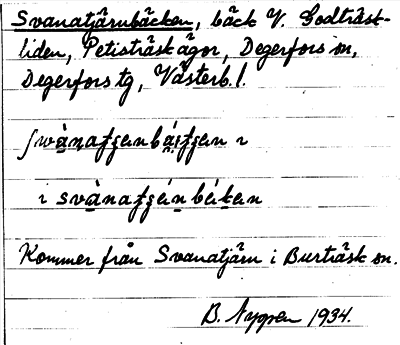 Svanatjärnbäcken, bäck V. Godträsk-
liden, Petisträsk ägor, Degerfors sn,
Degerfors tg, Västerb. l.
i
Kommer från Svanatjärn i Burträsk sn.
B. Nygren 1934.